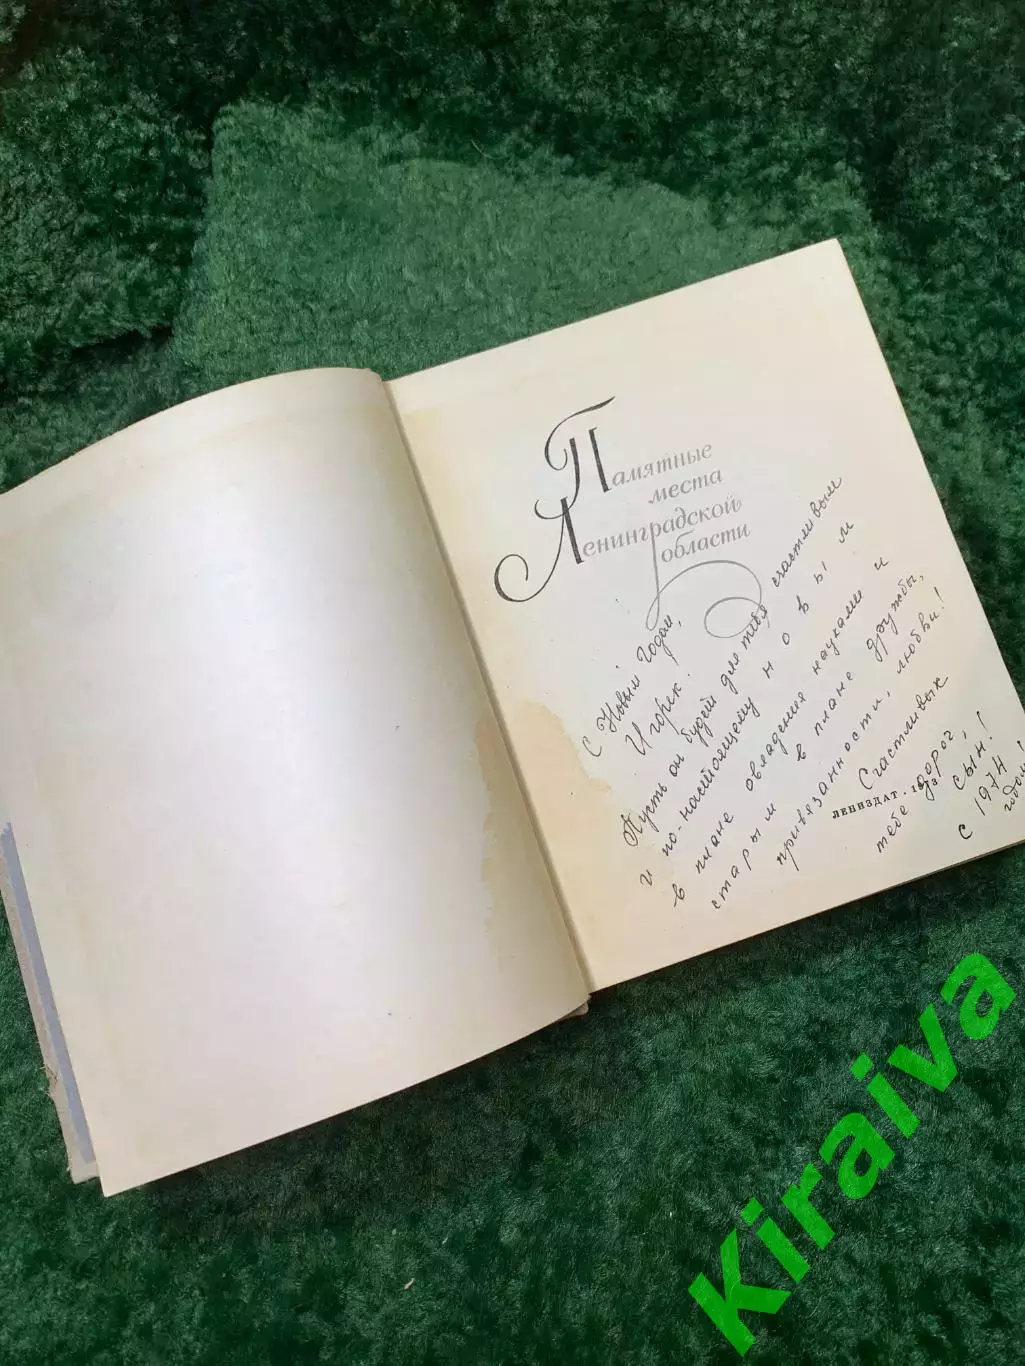 Памятные
места
Ленинградской
области
С Новым Годом,
Игорек!
Пусть он будет для тебя счастливым
и по-настоящему новым
в плане овладения науками и
старым в плане дружбы,
привязанности, любви!
Счастливых
тебе дорог,
сын!
С 1974
годом!
ЛЕНИЗДАТ · 1973
Kiraiva